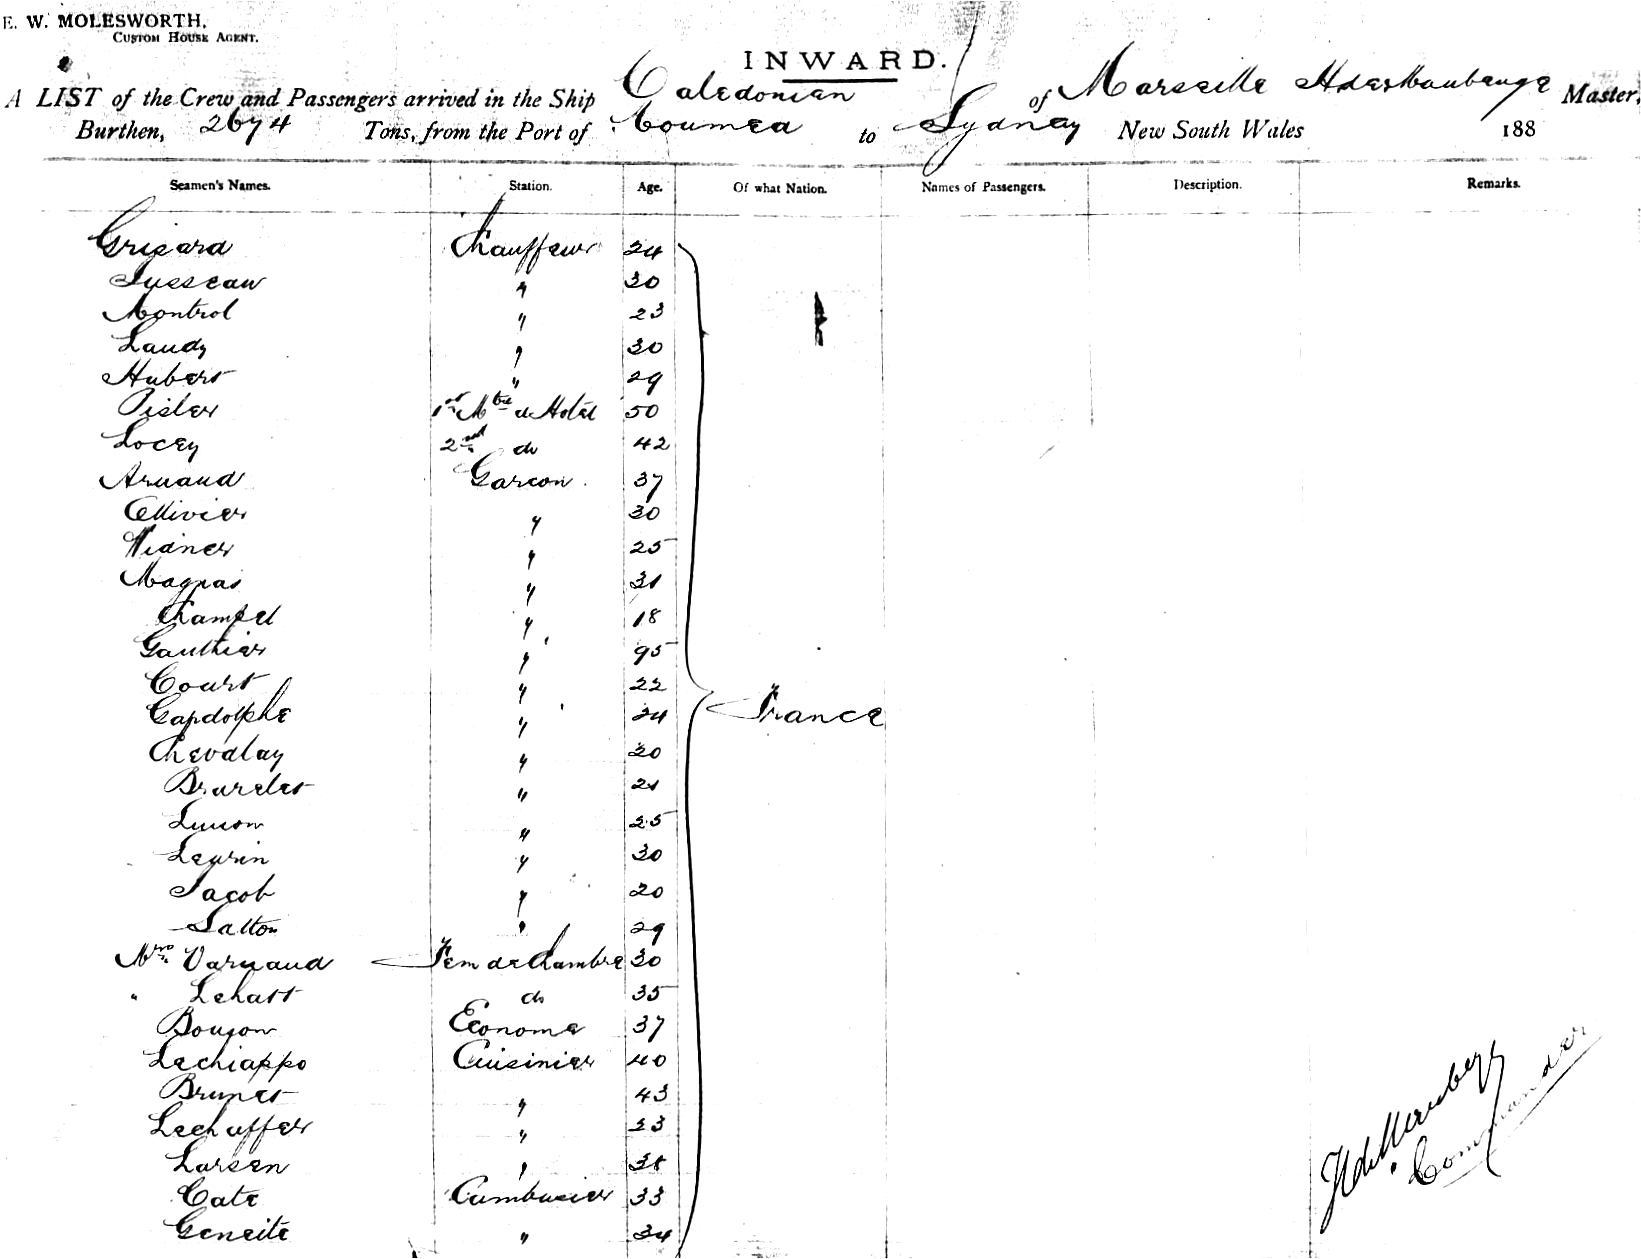 E. W. MOLESWORTH.
CUSTOM HOUSE AGENT.
INWARD.
A LIST of the Crew and Passengers arrived in the Ship Caledonien of Marseille Master,
Burthen, 2674 Tons, from the Port of Noumea to Sydney New South Wales 188
Seamen's Names. Station. Age. Of what Nation. Names of Passengers. Description. Remarks.
Grisard Chauffeur 24
Jusseau " 30
Montrol " 23
Laudy " 30
Hubert " 29
Pisler 1er Mtre de Hotel 50
Locey 2nd do 42
Arnaud Garcon 37
Ollivier " 30
Widner " 25
Magnas " 31
Champel " 18
Gauthier " 95
Court " 22
Gapdolphe " 24 France
Chevalay " 20
Brurelet " 21
" 25
Leyrin " 30
Jacob " 20
Salton " 29
Mme Varnaud Fem de Chambre 30
" Lehatt do 35
Boujon Econome 37
Lechiappo Cuisinier 40
Brunet " 43
Lechuffer " 23
Larsen "
Cate Cambusier 33
Geneite " 34
Commander